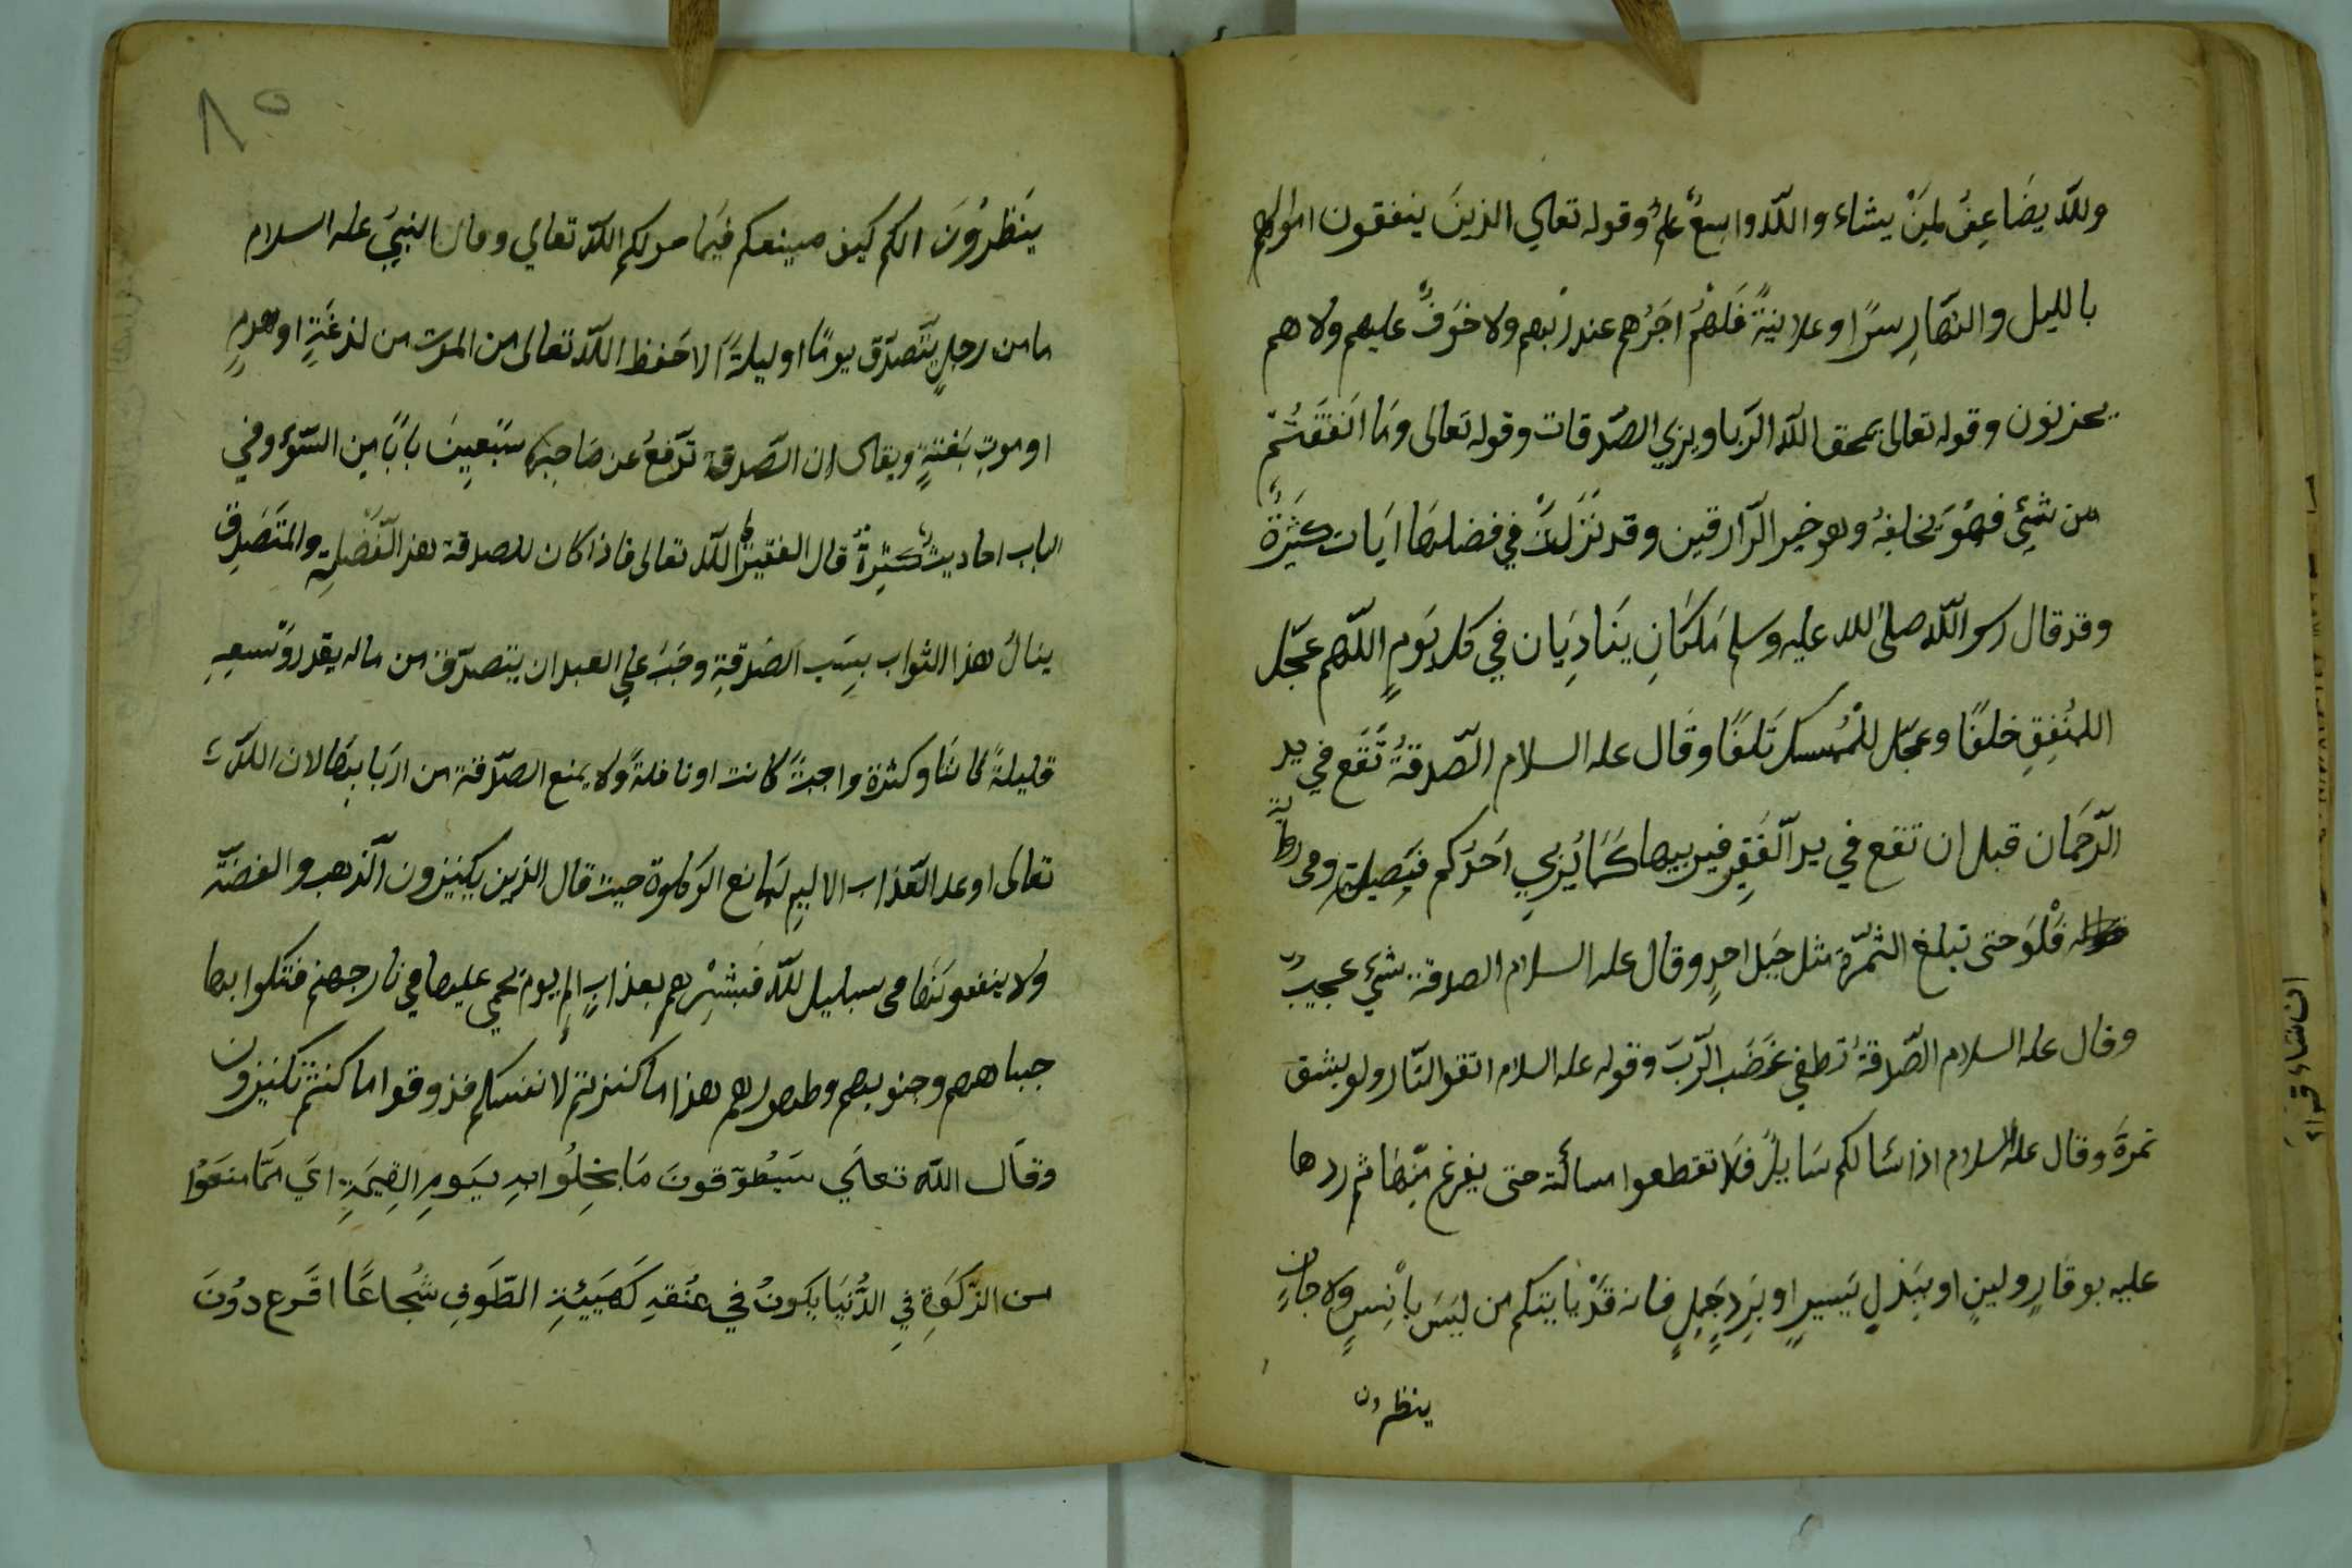 وللّه يضَاعِفُ لمِنَْ يشاء واللّه واسِعٌ علمٌ وقوله تعالي الذينَ ينفقون اموالهم
بالليل والنّهَارِ سرًا وعلانيَةً فَلَهُمْ اجَرُهم عند ربّهم ولا خَوَفٌ عليهم ولا هم
يحزنون وقوله تعالى يمحق اللّه الرّبا ويربي الصّدقات وقوله تعالى ومَا انَفَقَتُمْ
من شيْئٍ فهُوَ يخلفِهُ وهو خير الرّازقين وقد نَزَلَتْ في فضلهَا ايَات كثيَرةٌ
وقد قال رسو اللّه صلىّ للله عليه وسلم مَلَكَانِ ينَادِيَان في كل يَومٍ اللّهم عجّل
اللمُنفِقِ خلفًا وعجّل للمُْمسك تَلَفًا وقَال عله السلام الصّدقةُ تَقَع في يد
الرّحَمان قبل ان تقع في يد الّفَقِرِ فيربيها كَمَا يُربِي احَدُكم فَصِيلَهِ ومى
فَلْوَ حتى تبلغ الثّمَرة مثل جَبَل احدٍ وقال عله السلام الصدقة شيْئ عجيبٌ
وقال عله السلام الصّدقةُ تطفي غَضَبَ الرّبَ وقوله عله السلام اتقوا لنّار ولو بشق
تمرةَ وقال عله السلام اذا سَالكم سَايلٌ فَلاَ تقطعوا مسألته حتى يفرغ منِّهَا ثم ردها
عليه بوقَارٍ ولينٍ او ببَذلٍ يَسيرٍ او برَدٍ جَملٍ فانه قَدْ يَأيتكم من ليَسَ بإنْسٍ ولا جانٍ
ينظرون
٨٥
ينَظَرُوُنَ الكم كيف صينعكم فيَما خولكم اللّه تعالي وقال النبيَ عله السلام
ما من رجلٍ يتّصدّق يومًا او ليلةًَ الا حَفظ اللّه تعالى من الموت من لدغَةٍ او هدمٍ
او موتِ بَغْتةٍ ويقال إن الصّدقة تَدَفعُ عن صَاحِبهَا سَبَعِينَ بابًا مِن السّوُء وفي
الباب احاديثُ كثِيرةٌ قال الفقيرُ اللّه تعالى فاذا كان للصدقة هذ الّفَضَلِهِ والمتَصَدِق
ينالُ هذا الثواب بسِبَب الصَدقةِ وجَبَ علِي العبد ان يتصدّقَ من ماله يقدر وَسعِهِ
قليلةً كانَتَا وكثرة واجبةً كانت او نافلةً ولا يمنع الصّدقة من اربَابهَا لان اللّه
تعالى اوعد العّذاب الاليم لمانع الزكاوة حيث قال الذين يكنيزون الّذهب والفضّة
ولا ينفقونَهَا مى سبليل للّه فَبشْرِهم بعذابٍ الِمٍ يوم يحمي عليها في نار جهنم فتكوا بها
جباههم وجنوبهم وظهورهم هذا ما كنزتم لا نفسكم فذوقوا ما كنتم تكنيزون
وقَال اللّه تعالَي سَيُطوّقونَ مَا بخِلُوا بهِ يَومِ القِيَمَةِ اىَ ممَّا منَعَوُا
من الزّكَوةِ فيِ الدُّنيَا يكَونُ في عنُقهِ كهَيَئةِ الطّوَفِ شُجاعًا اقَرع دوُنَ
ان شاء